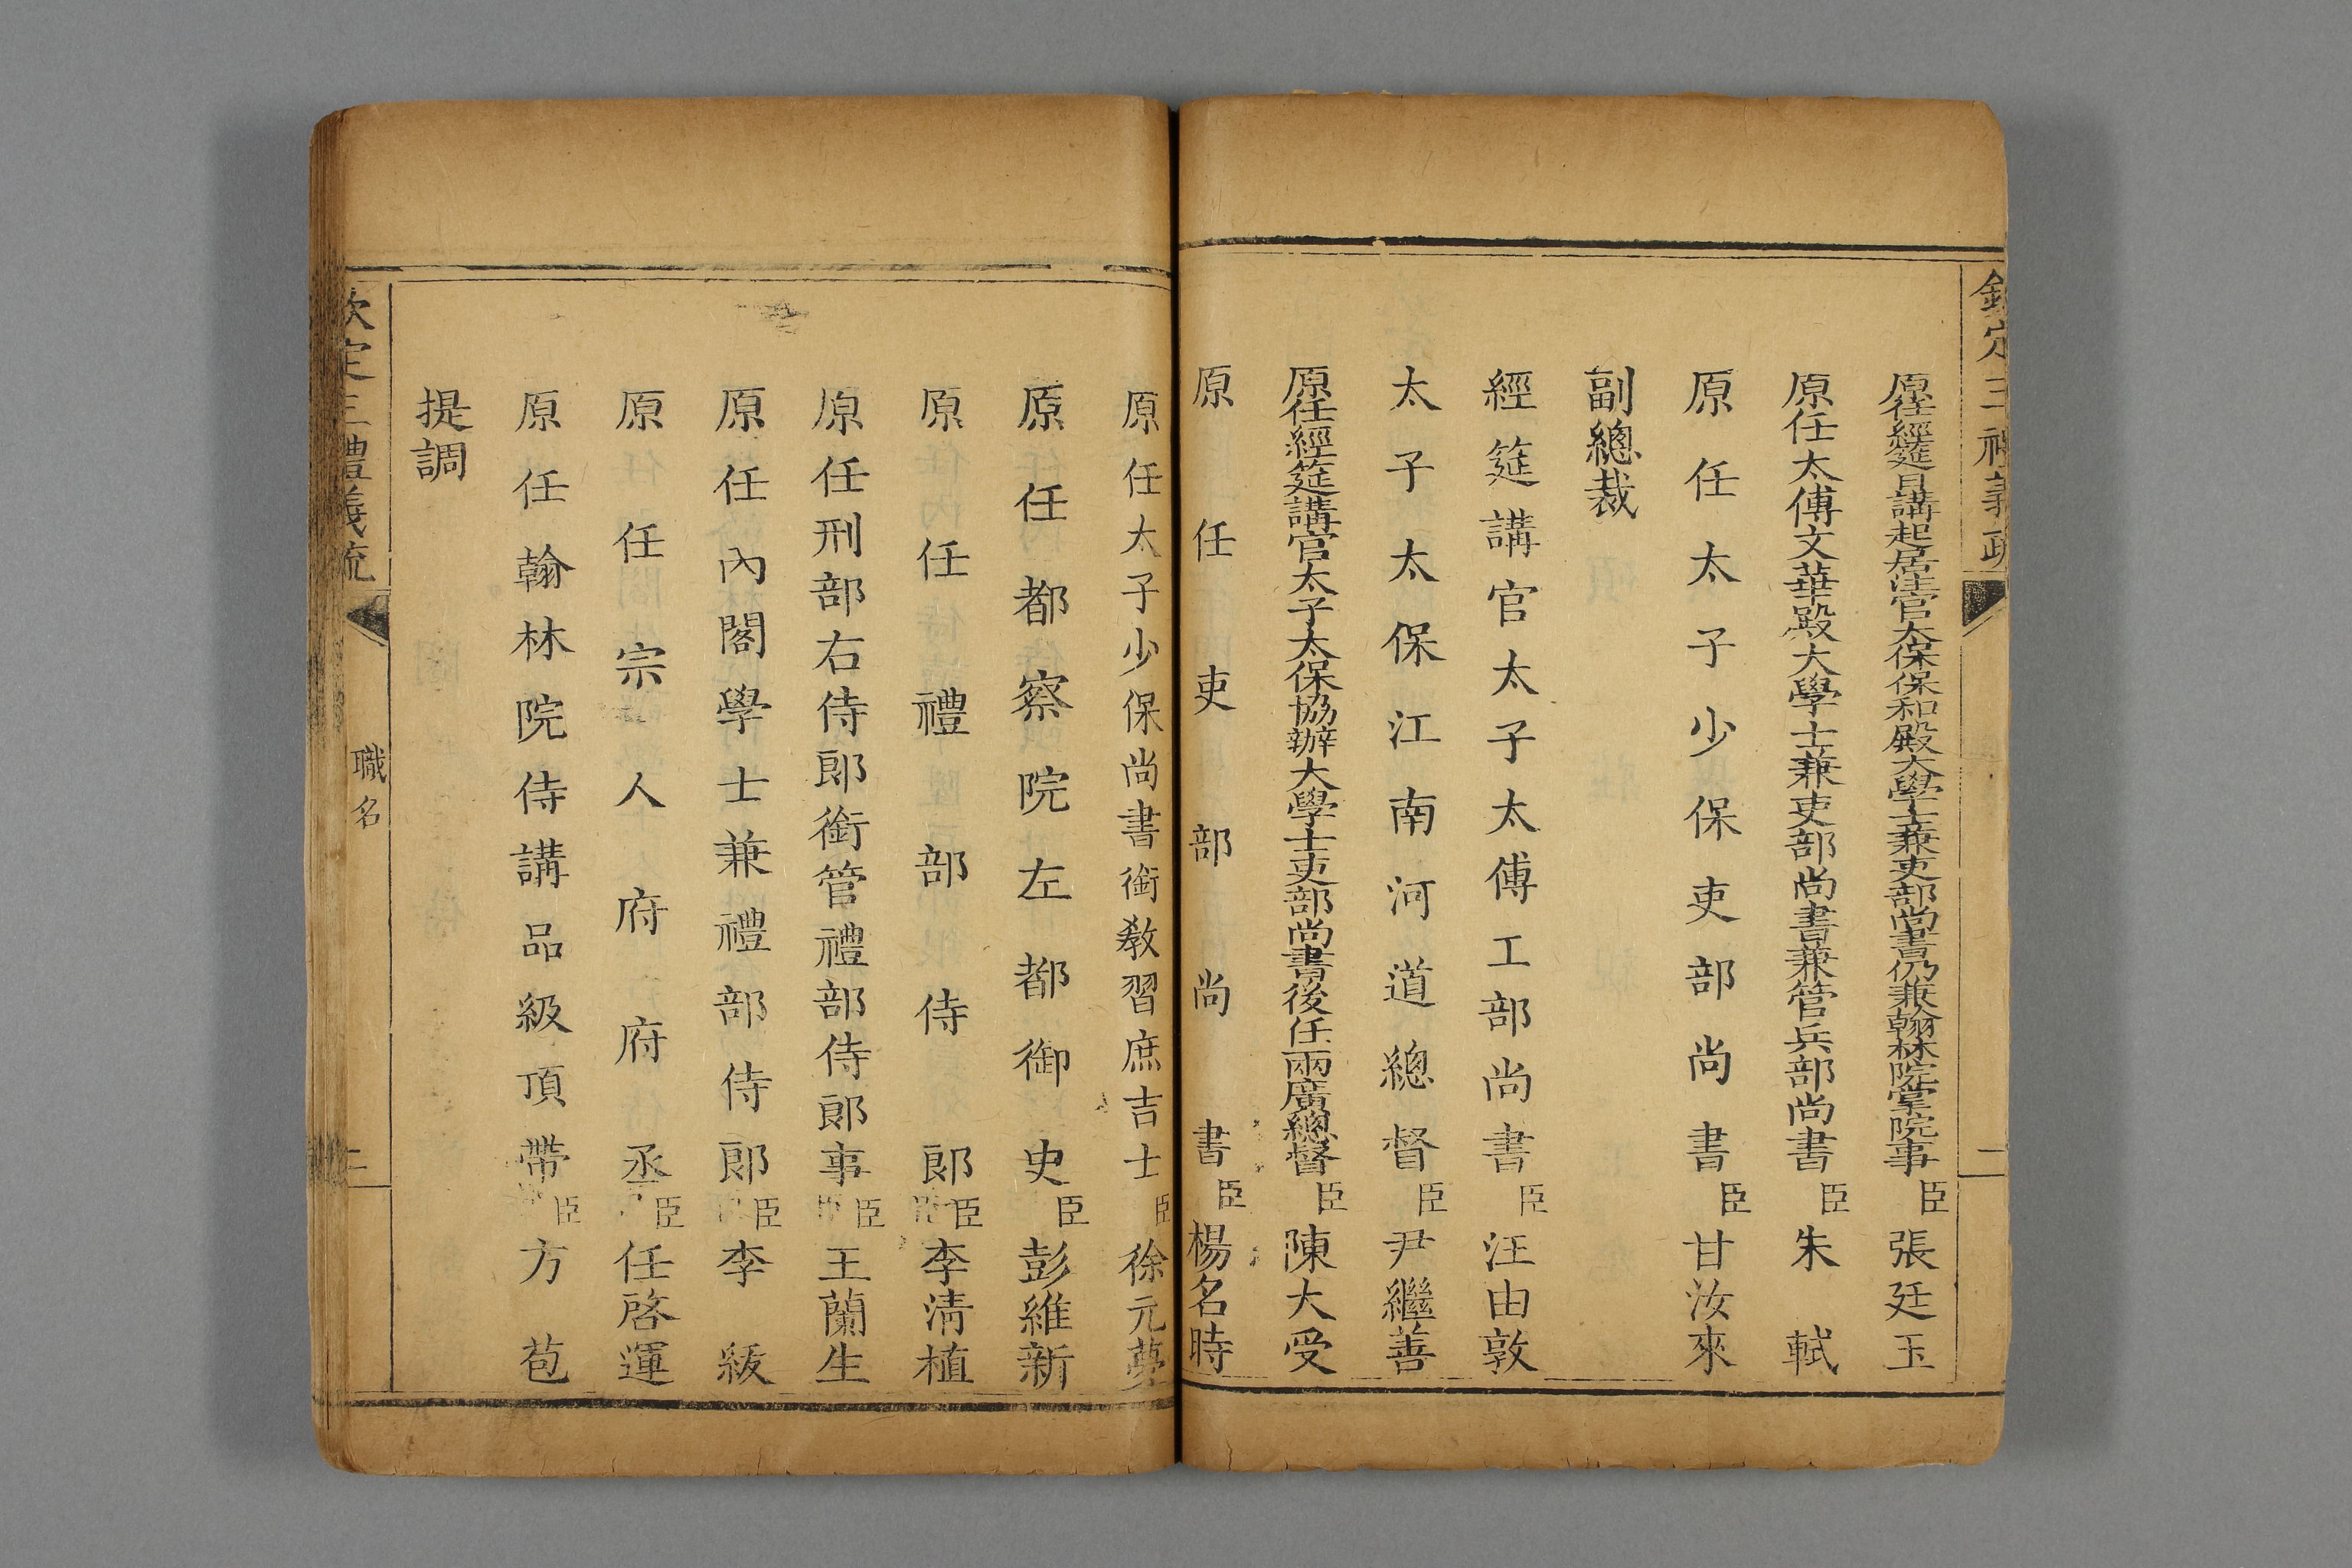 欽定三禮義疏
二
原任經筵日講起居注官太保保和殿大學士兼吏部尚書仍兼翰林院掌院事臣張廷玉
原任太傅文華殿大學士兼吏部尚書兼管兵部尚書臣朱軾
原任太子少保吏部尚書臣甘汝來
副總裁
經筵講官太子太傅工部尚書臣汪由敦
太子太保江南河道總督臣尹繼善
原任經筵講官太子太保協辦大學士吏部尚書後任兩廣總督臣陳大受
原任吏部尚書臣楊名時
原任太子少保尚書銜教習庶吉士臣徐元夢
原任都察院左都御史臣彭維新
原任禮部侍郎臣李清植
原任刑部右侍郎銜管禮部侍郎事臣王蘭生
原任內閣學士兼禮部侍郎臣李紱
原任宗人府府丞臣任啓運
原任翰林院侍講品級頂帶臣方苞
提調
欽定三禮義疏
職名
三